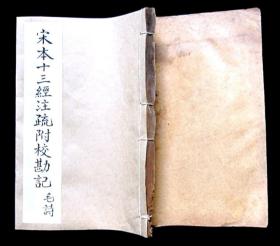 宋本十三經注疏附校勘記
毛詩